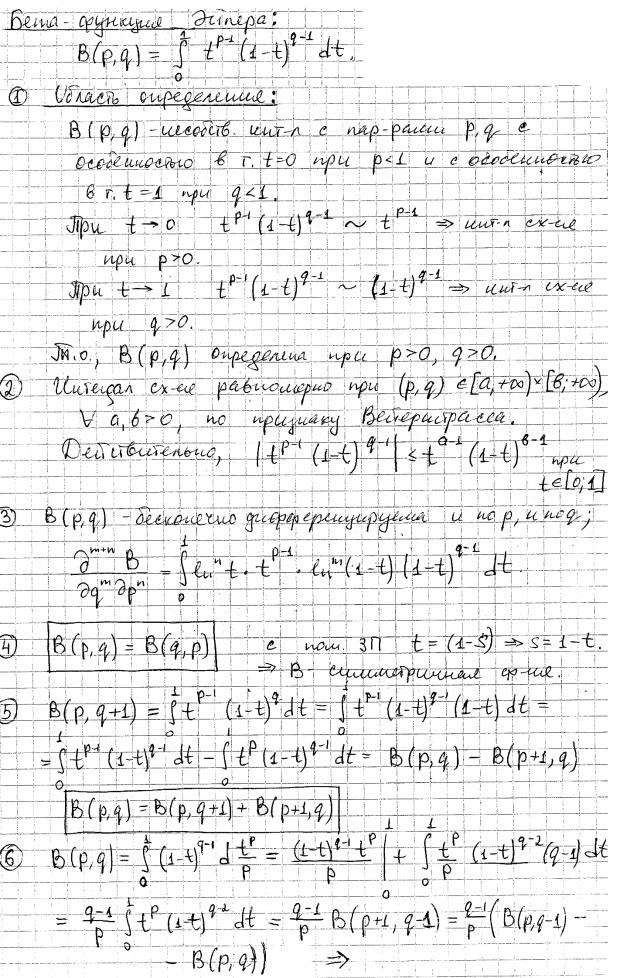 Бета-функция Эйлера:
B(p,q) = ∫₀¹ t^{p-1} (1-t)^{q-1} dt.
① Область определения:
B(p,q) - несобств. инт-л с пар-рами p,q с
особенностью в т. t=0 при p<1 и с особенностью
в т. t=1 при q<1.
При t→0 t^{p-1}(1-t)^{q-1} ~ t^{p-1} ⇒ инт-л сх-ся
при p>0.
При t→1 t^{p-1}(1-t)^{q-1} ~ (1-t)^{q-1} ⇒ инт-л сх-ся
при q>0.
Т.о., B(p,q) определена при p>0, q>0.
② Интеграл сх-ся равномерно при (p,q) ∈ [a,+∞)×[b;+∞),
∀ a,b>0, по признаку Вейерштрасса.
Действительно, |t^{p-1} (1-t)^{q-1}| ≤ t^{a-1} (1-t)^{b-1} при
t∈[0;1]
③ B(p,q) - бесконечно дифференцируема и по p, и по q;
∂^{m+n} B / ∂q^m ∂p^n = ∫₀¹ ln^n t · t^{p-1} · ln^m (1-t) (1-t)^{q-1} dt.
④ B(p,q) = B(q,p) с пом. ЗП t = (1-S) ⇒ s = 1-t.
⇒ B - симметричная ф-ия.
⑤ B(p,q+1) = ∫₀¹ t^{p-1} (1-t)^q dt = ∫₀¹ t^{p-1} (1-t)^{q-1} (1-t) dt =
= ∫₀¹ t^{p-1} (1-t)^{q-1} dt - ∫₀¹ t^p (1-t)^{q-1} dt = B(p,q) - B(p+1,q)
B(p,q) = B(p,q+1) + B(p+1,q)
⑥ B(p,q) = ∫₀¹ (1-t)^{q-1} d t^p/p = (1-t)^{q-1} t^p / p |₀¹ + ∫₀¹ t^p/p (1-t)^{q-2} (q-1) dt
= (q-1)/p ∫₀¹ t^p (1-t)^{q-2} dt = (q-1)/p B(p+1, q-1) = (q-1)/p (B(p,q-1) -
- B(p,q)) ⇒